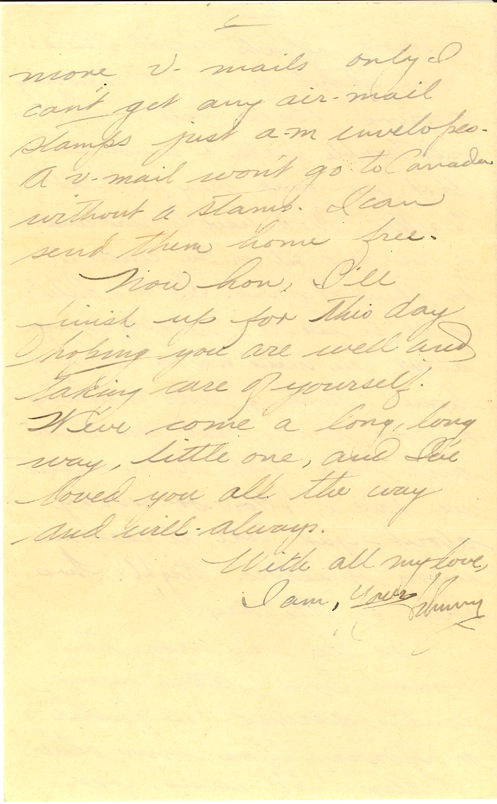 more v-mails only I
can't get any air-mail
stamps just a-m envelopes.
A v-mail won't go to Canada
without a stamp. I can
send them home free.
Now hon, I'll
finish up for this day
hoping you are well and
taking care of yourself.
We've come a long, long
way, little one, and I've
loved you all the way
and will-always.
With all my love,
I am, Your Johnny